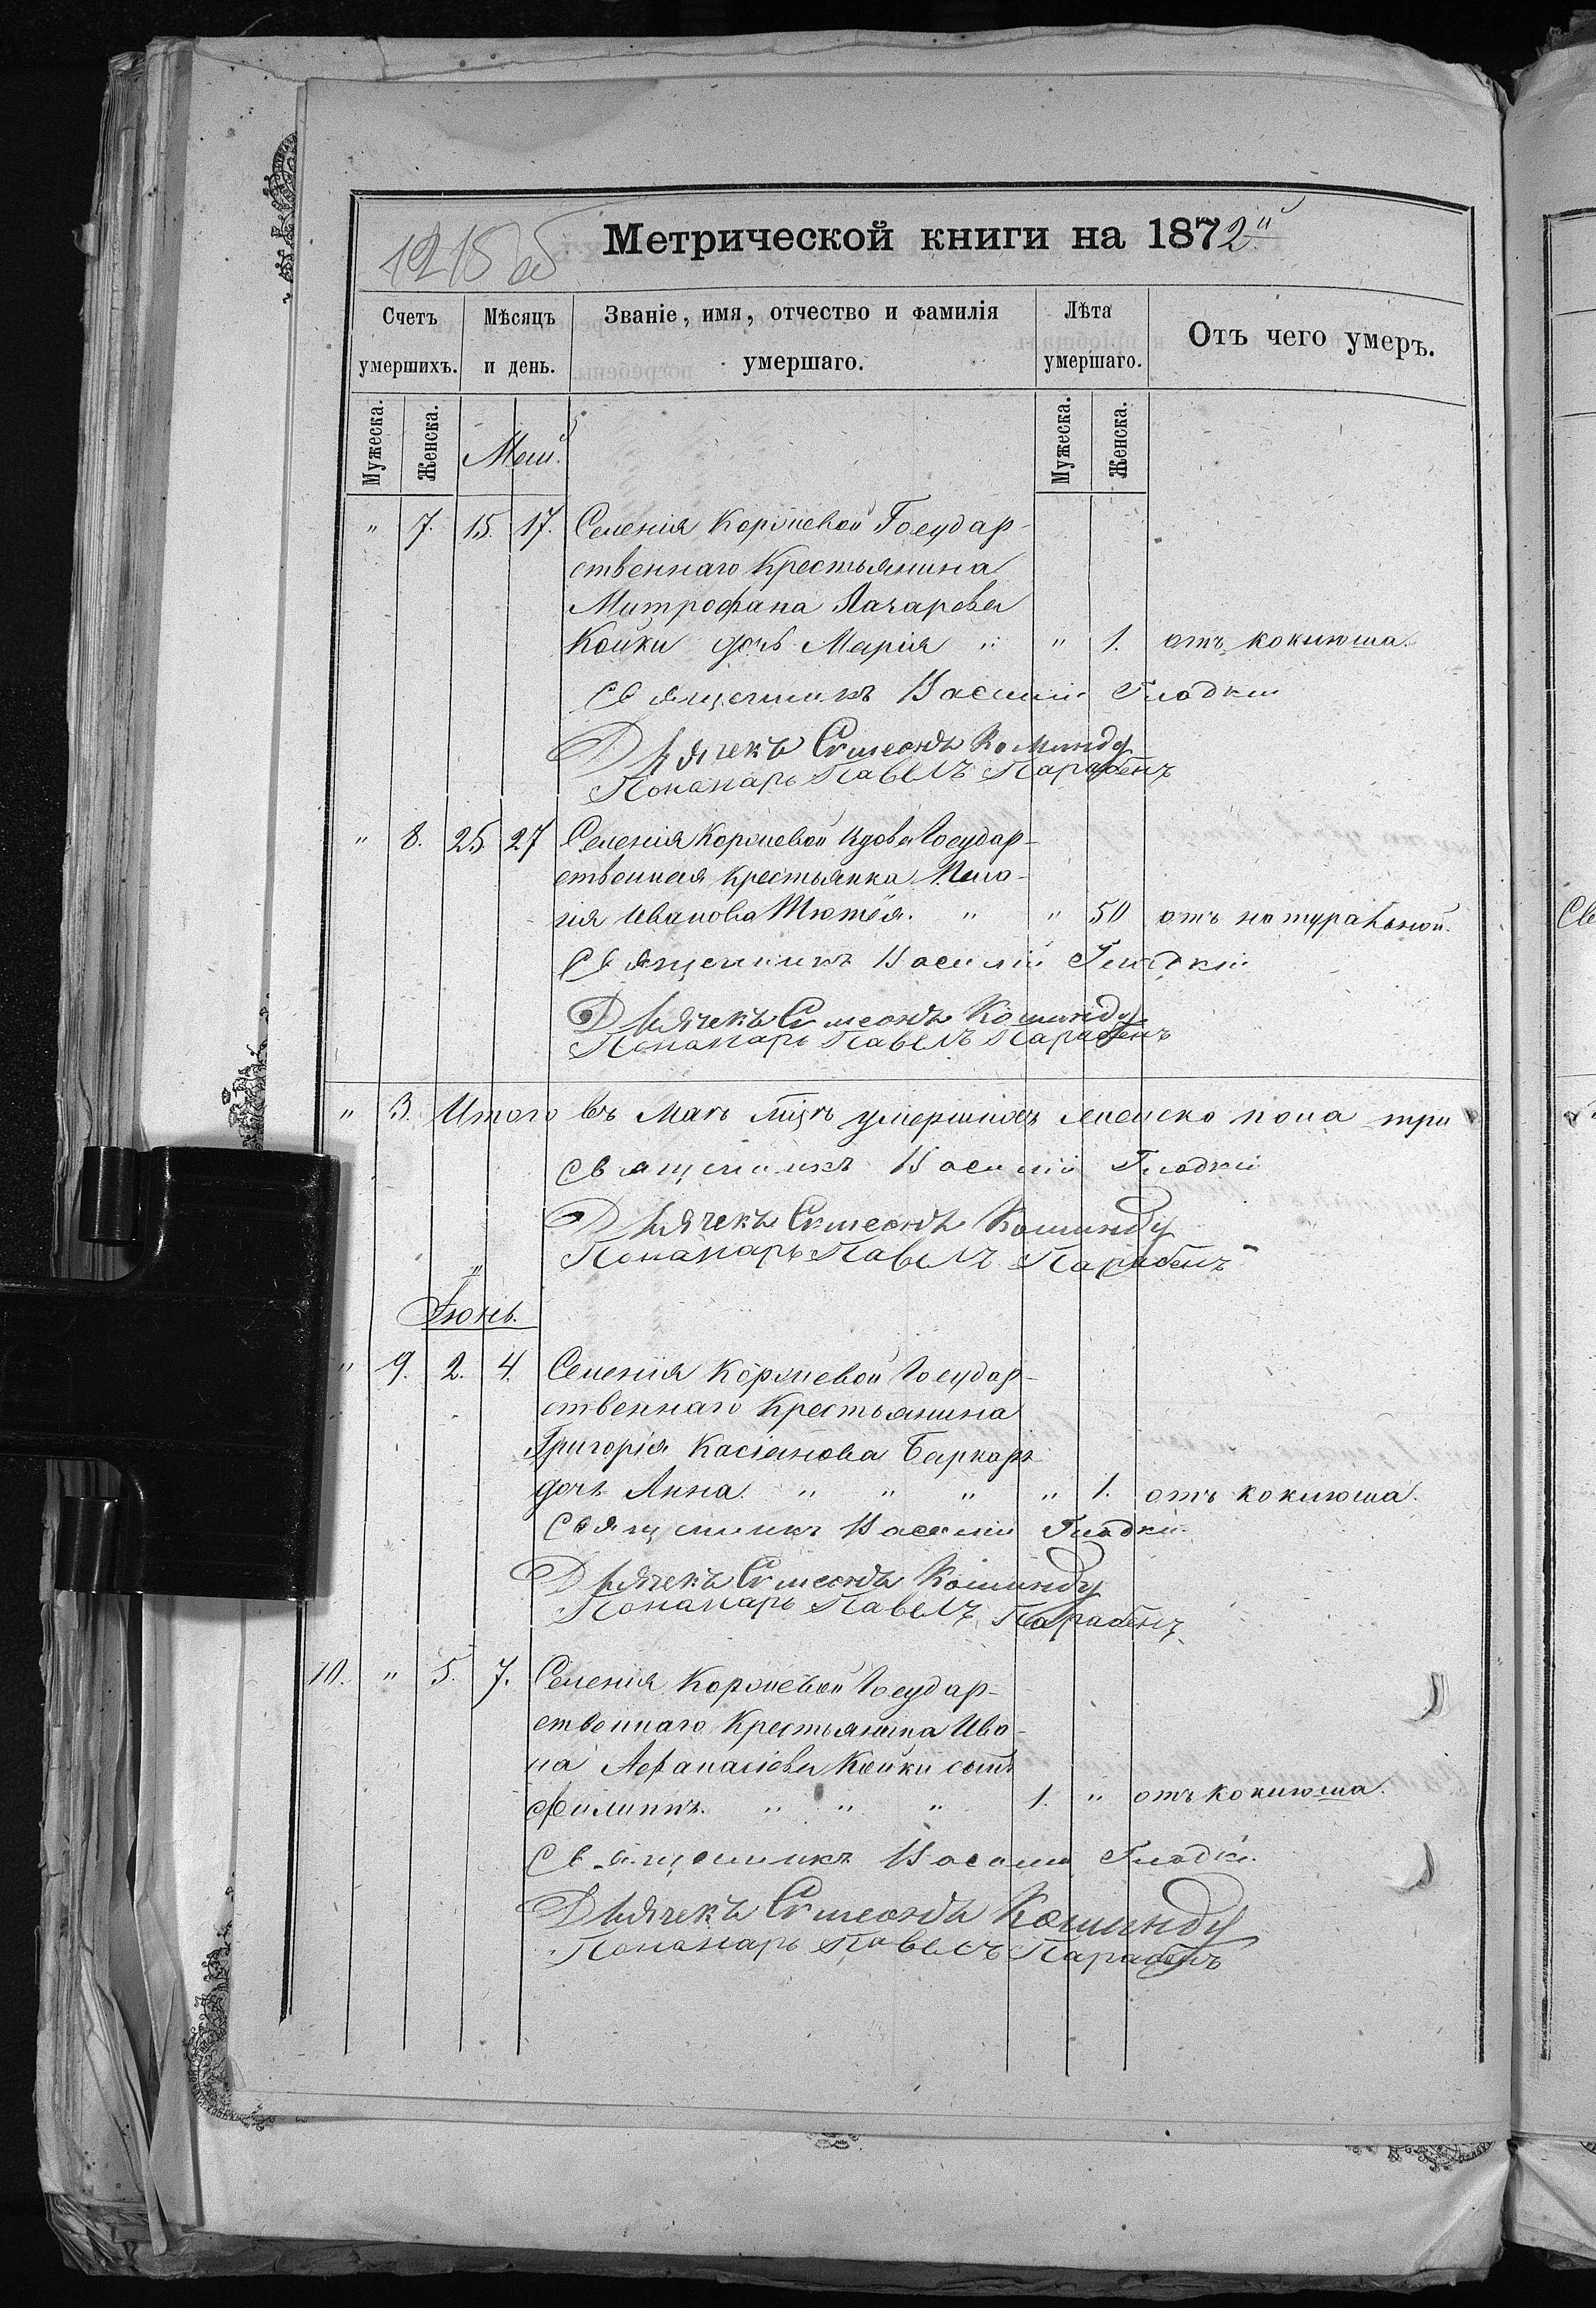 1218 об
Метрической книги на 1872й
Счетъ умершихъ.
Мѣсяцъ и день.
Званіе, имя, отчество и фамилія умершаго.
Лѣта умершаго.
Отъ чего умеръ.
Мужеска.
Женска.
Май.
Мужеска.
Женска.
" 7. 15. 17. Селенія Коржевой Государ-
ственнаго Крестьянина
Митрофана Захарова
Койки дочь Марія " " 1. отъ коклюша.
Священникъ Василій Гладкій
Дьячекъ Симеонъ Коминду
Понамарь Павелъ
" 8. 25 27 Селенія Коржевой вдова Государ-
ственная Крестьянка Пела-
гія Иванова " " 50 отъ натуральной.
Священникъ Василій Гладкій
Дьячекъ Симеонъ Коминду
Понамарь Павелъ
" 3. Итого въ Маѣ мцѣ умершихъ женско пола три
Священникъ Василій Гладкій
Дьячекъ Симеонъ Коминду
Понамарь Павелъ
Іюнь.
" 9. 2. 4. Селенія Коржевой Государ-
ственнаго Крестьянина
Григорія Касіанова
дочь Анна. " " " " 1. отъ коклюша.
Священникъ Василій Гладкій
Дьячекъ Симеонъ Коминду
Понамарь Павелъ
10. " 5. 7. Селенія Коржевой Государ-
ственнаго Крестьянина Ива-
на Афанасіева Койки сынъ
Филиппъ. " " " 1. " отъ коклюша.
Священникъ Василій Гладкій
Дьячекъ Симеонъ Коминду
Понамарь Павелъ